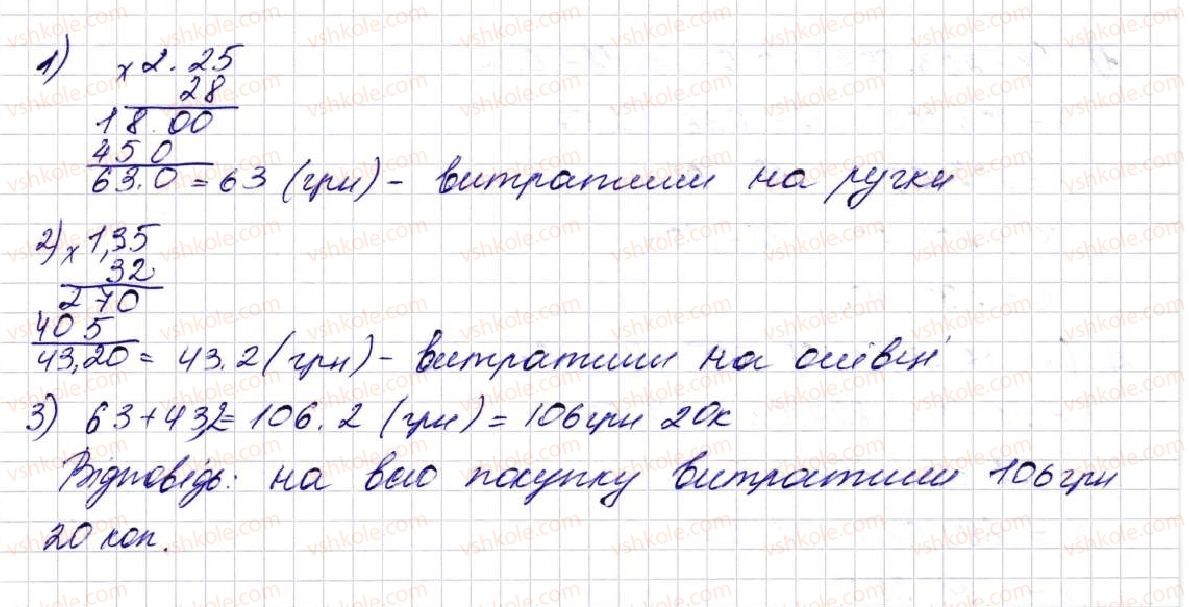 1) × 2.25
28
18.00
450
63.0 = 63 (грн) - витратили на ручки
2) × 1,35
32
270
405
43,20 = 43.2 (грн) - витратили на олівці
3) 63+43,2= 106.2 (грн) = 106грн 20к
Відповідь: на всю покупку витратили 106грн
20 коп.